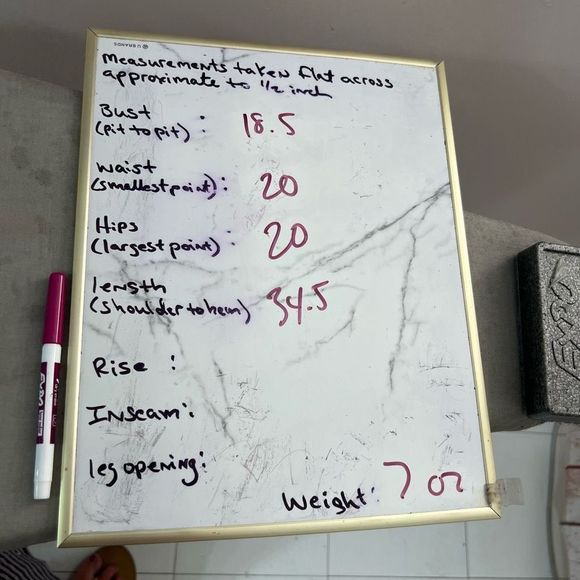 U BRANDS
Measurements taken flat across
approximate to 1/2 inch
Bust
(pit to pit) : 18.5
waist
(smallest point) : 20
Hips
(largest point) : 20
length
(shoulder to hem) 34.5
Rise :
Inseam :
leg opening :
Weight : 7 oz
EXPO
EXPO